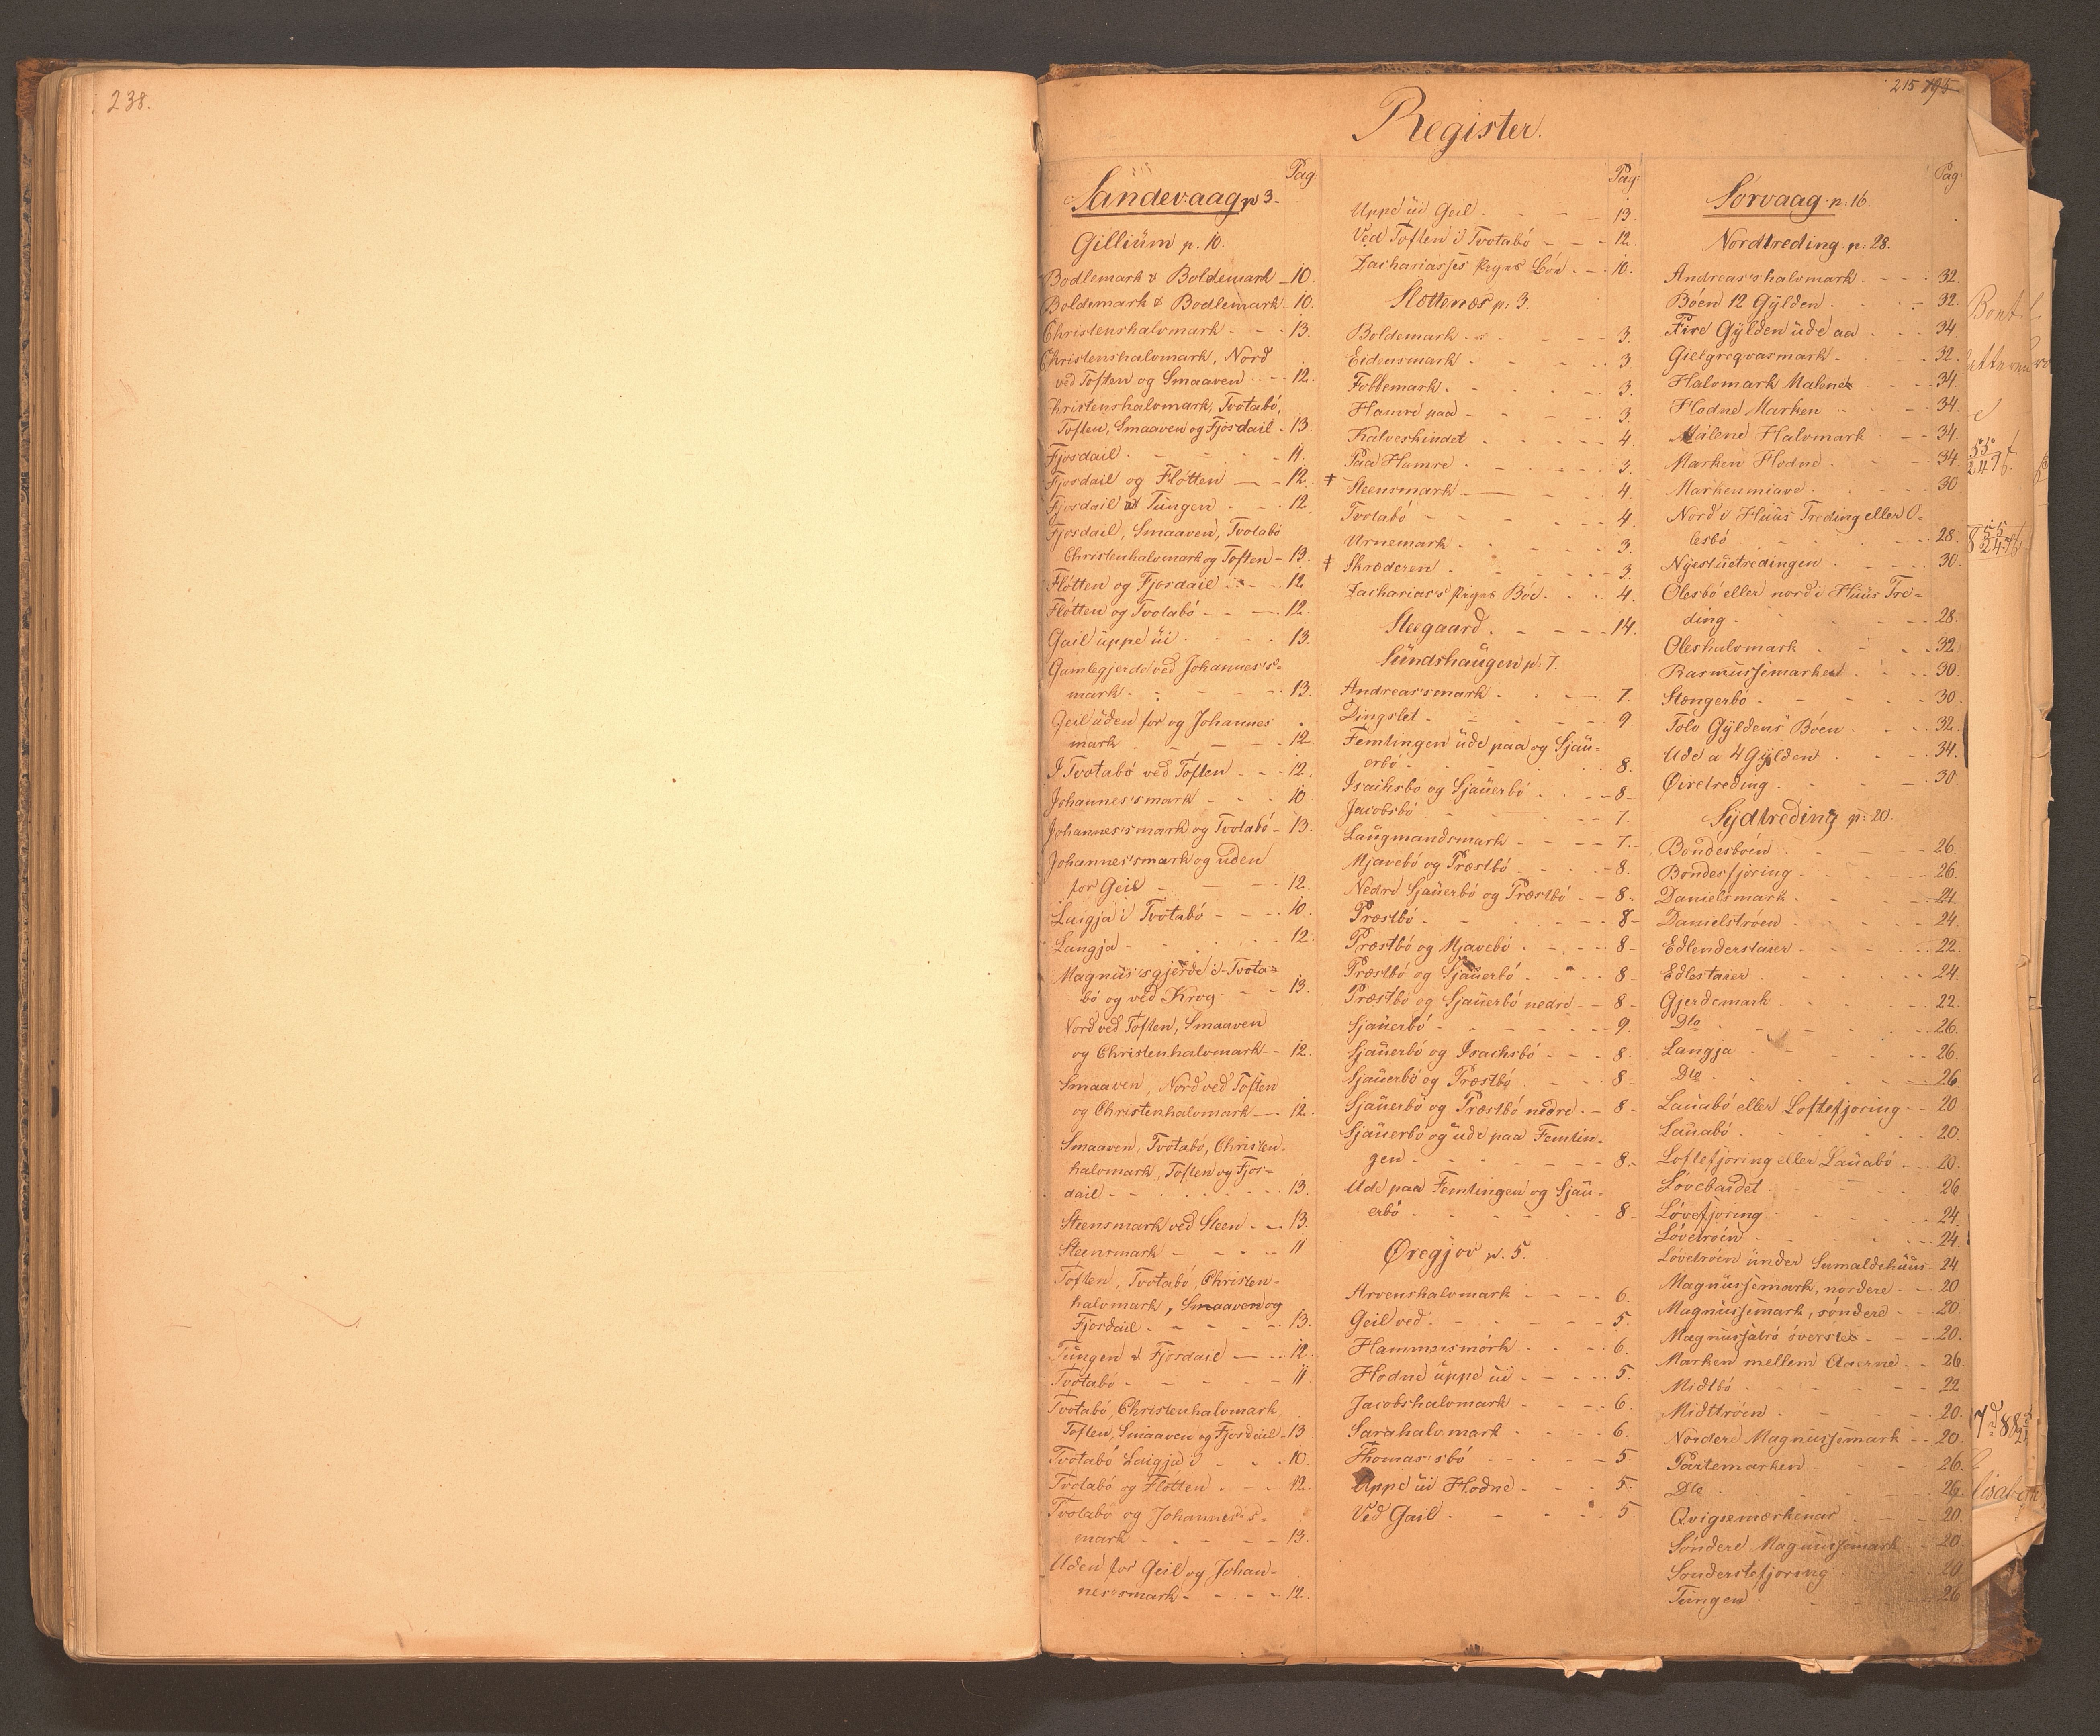 238.
215 195
Register.
Pag:
Sandevaag p 3.
Gillium p. 10.
Bodlemark & Boldemark - 10.
Boldemark & Bodlemark - 10.
Christenshalvmark - - - 13.
Christenshalvmark, Nord
ved Toften og Smaaven - - 12.
Christenshalvmark, Tvotabó,
Toften, Smaaven og Fjosdail - 13.
Fjosdail - - - 11.
Fjosdail og Flótten - - 12.
Fjosdail & Tungen - - 12.
Fjosdail, Smaaven, Tvotabó
Christenhalvmark og Toften - 13.
Flótten og Fjosdail - - 12.
Flótten og Tvotabó - - 12.
Gail uppe ui - - - 13.
Gamlegjerde ved Johannes's-
mark - - - 13.
Geil uden for og Johannes
mark - - - 12
I Tvotabó ved Toften - - 12.
Johannes's mark - - 10
Johannes's mark og Tvotabó - 13.
Johannes's mark og uden
for Geil - - - 12.
Laigja i Tvotabó - - - 10.
Langja - - - 12.
Magnus's gjerde i Tvota-
bó og ved Krog - - 13.
Nord ved Toften, Smaaven
og Christenhalvmark - - 12.
Smaaven, Nord ved Toften
og Christenhalvmark - 12.
Smaaven, Tvotabó, Christen-
halvmark, Toften og Fjos-
dail - - - 13.
Steensmark ved Steen - - 13.
Steensmark - - - 11
Toften, Tvotabó, Christen-
halvmark, Smaaven og
Fjosdail - - - 13.
Tungen & Fjosdail - - 12.
Tvotabó - - - 11
Tvotabó, Christenhalvmark
Toften, Smaaven og Fjosdail - 13
Tvotabó Laigja i - - 10.
Tvotabó og Flótten - - 12.
Tvotabó og Johannes's-
mark - - - 13.
Uden for Geil og Johan-
nes's mark - - - 12.
Pag:
Uppe ui Geil - - - 13.
Ved Toften i Tvotabó - - 12.
Zachariasses - - 10.
Slottenæs p: 3.
Boldemark - - - 3.
Eidensmark - - - 3.
Fobbemark - - - 3.
Hamre paa - - - 3.
Kalveskindet - - - 4.
Paa Hamre - - - 3.
Steensmark - - - 4.
Tvotabó - - - 4.
Urnemark - - - 3.
Skræderen - - - 3.
Zacharias's Bóe - - 4.
Steegaard - - - 14.
Sundshaugen p: 7.
Andreas'smark - - - 7.
Dingslet - - - 9.
Femtingen ude paa og Sjau-
erbó - - - 8.
Isachsbó og Sjauerbó - - 8-
Jacobsbó - - - 7.
Laugmandsmark - - - 7.
Mjavebó og Præstbó - - 8.
Nedre Sjauerbó og Præstbó - 8-
Præstbó - - - 8-
Præstbó og Mjavebó - - 8-
Præstbó og Sjauerbó - - 8-
Præstbó og Sjauerbó nedre - 8-
Sjauerbó - - - 9.
Sjauerbó og Isachsbó - - 8.
Sjauerbó og Præstbó - - 8-
Sjauerbó og Præstbó nedre - 8-
Sjauerbó og ude paa Femtin-
gen - - - 8.-
Ude paa Femtingen og Sjau-
erbó - - - 8-
Øregjov p. 5.
Arvenshalvmark - - - 6.
Geil ved - - - 5.
Hammersmórk - - 6.
Hodne uppe ui - - - 5.
Jacobshalvmark - - - 6.
Sarahalvmark - - - 6.
Thomas'sbó - - - 5
Uppe ui Hodne - - 5.
Ved Gail - - - 5.
Pag:
Sørvaag p: 16.
Nordtreding p: 28.
Andreas'shalvmark - - 32.
Bóen 12 Gylden - - 32.
Fire Gylden ude aa - - 34
Gielgregvasmark - - 32.
Halvmark Malenes - - 34.
Hodne Marken - - 34.
Malene Halvmark - - 34.
Marken Hodne - - 34
Markenmiave - - 30
Nord i Huus Treding eller O-
lesbó - - - 28.
Nyestuetredingen - - 30
Olesbó eller nord i Huus Tre-
ding - - - 28.
Oleshalvmark - - 32.
Rasmussemarken - - 30.
Stængerbó - - - 30
Tolv Gyldens Bóen - - 32.
Ude a 4 Gylden - - 34.
Øiretreding - - 30
Sydtreding p: 20.
Bondesbóen - - 26.
Bondesfjóring - - 26.
Danielsmark - - 24.
Danielstróen - - 24.
Edlenderstaxer - - 22.
Edlestaxer - - 24.
Gjerdemark - - 22.
Dto - - - 26.
Langja - - - 26.
Dto - - - 26
Lauabó eller Loftefjoring - 20
Lauabó - - - 20
Loftefjoring eller Lauabó - 20.
Lóvebardet - - 26
Lóvefjoring - - 24.
Lóvetróen - - 24.
Lóvetróen under Sumaldehuus - 24
Magnussemark, nordere - - 20
Magnussemark, sóndere - - 20.
Magnussatró óverstes - - 20.
Marken mellem Aaerne - - 26.
Midtbó - - - 22
Midttróen - - - 20.
Nordere Magnussemark - - 20
Partemarken - - 26.
Dto - - - 26.
Qvigsemærkenar - - 20.
Sóndere Magnussemark - 20
Sonderstefjoring - - 20
Tungen - - - 26